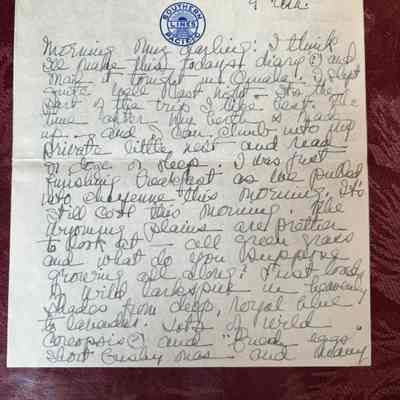 9 a.m.
SOUTHERN PACIFIC
LINES
Morning my darling: I think
I'll make this today's diary and
mail it tonight in Omaha. I slept
quite well last night - It's the
part of the trip I like best. The
time after my berth is made
up - and I can climb into my
private little nest and read
or doze or sleep. I was just
finishing breakfast as we pulled
into Cheyenne this morning. It's
still cool this morning. The
Wyoming plains are prettier
to look at - all green grass
and what do you suppose
growing all along? Just loads
of wild larkspur in heavenly
shades from deep, royal blue
to lavender. Lots of wild
coreopsis (?) and "fried eggs"
short bushy ones and many